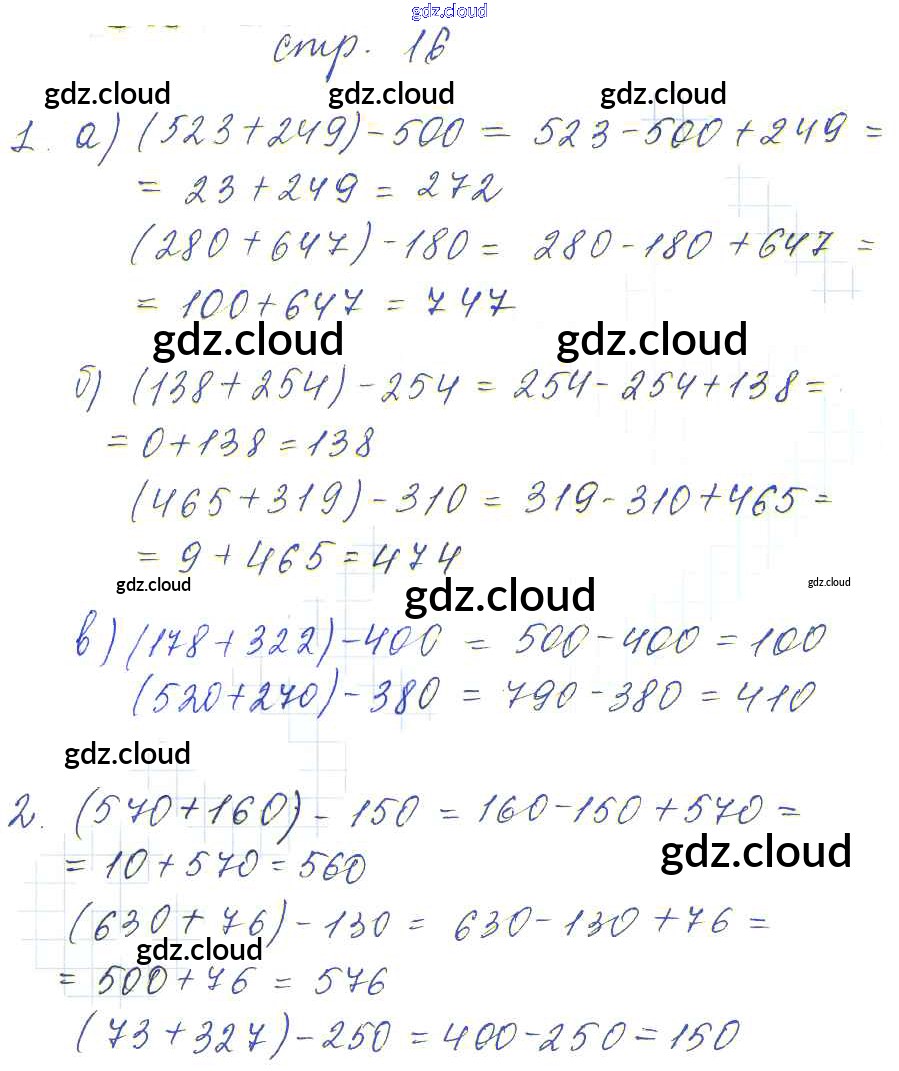 gdz.cloud
стр. 16
gdz.cloud gdz.cloud gdz.cloud
1. а) (523+249)-500 = 523-500+249 =
= 23+249 = 272
(280+647)-180 = 280-180+647 =
= 100+647 = 747
gdz.cloud gdz.cloud
б) (138+254)-254 = 254-254+138 =
= 0+138 = 138
(465+319)-310 = 319-310+465 =
= 9+465 = 474
gdz.cloud gdz.cloud gdz.cloud
в) (178+322)-400 = 500-400 = 100
(520+270)-380 = 790-380 = 410
gdz.cloud
2. (570+160)-150 = 160-150+570 =
= 10+570 = 560
gdz.cloud
(630+76)-130 = 630-130+76 =
gdz.cloud
= 500+76 = 576
(73+327)-250 = 400-250 = 150